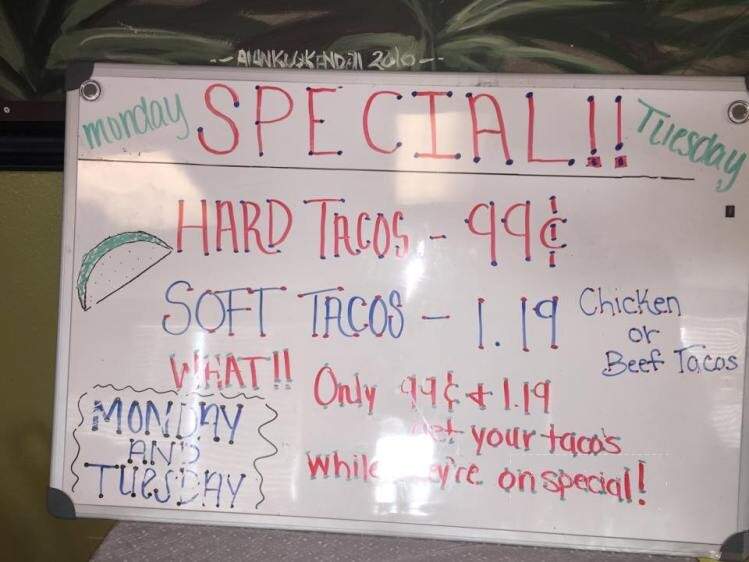 2010
monday SPECIAL!! Tuesday
HARD TACOS - 99¢
SOFT TACOS - 1.19
Chicken
or
Beef Tacos
WHAT!!
Only 99¢ & 1.19
get your taco's
While they're on special!
MONDAY
AND
TUESDAY